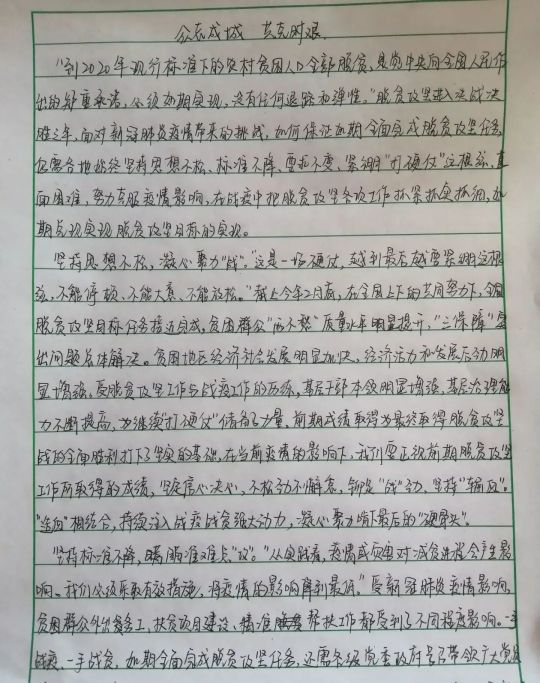 众志成城 共克时艰
“到2020年现行标准下的农村贫困人口全部脱贫，是党中央向全国人民作
出的郑重承诺，必须如期实现，没有任何退路和弹性。”脱贫攻坚进入决战决
胜之年，面对新冠肺炎疫情带来的挑战，如何保证如期全面完成脱贫攻坚任务，
仍需各地始终坚持思想不松、标准不降、要求不变、紧绷“打硬仗”这根弦，直
面困难，努力克服疫情影响，在战疫中把脱贫攻坚各项工作抓紧抓实抓细，如
期兑现实现脱贫攻坚目标的实现。
坚持思想不松，凝心聚力“战”。“这是一场硬仗，越到最后越要紧绷这根
弦，不能停顿、不能大意、不能放松。”截止今年2月底，在全国上下的共同努力下，全国
脱贫攻坚目标任务接近完成，贫困群众“两不愁”质量水平明显提升，“三保障”突
出问题总体解决。贫困地区经济社会发展明显加快，经济活力和发展后劲明
显增强。受脱贫攻坚工作与战疫工作的历练，基层干部本领明显增强，基层治理能
力不断提高，为继续“打硬仗”储备了力量，前期成绩取得为最终取得脱贫攻坚
战的全面胜利打下了坚实的基础。在当前疫情的影响下，我们要正视前期脱贫攻坚
工作所取得的成绩，坚定信心决心，不松劲不懈怠，铆足“战”劲，坚持“输血”
“造血”相结合，持续注入战疫战贫强大动力，凝心聚力啃下最后的“硬骨头”。
坚持标准不降，瞄脱准难点“攻”。“从实践看，疫情或灾害对减贫进程会产生影
响。我们必须采取有效措施，将疫情的影响降到最低。”受新冠肺炎疫情影响，
贫困群众外出务工、扶贫项目建设、精准帮扶工作都受到了不同程度影响。一手
战疫，一手战贫，如期全面完成脱贫攻坚任务，还需各级党委政府带领广大党员